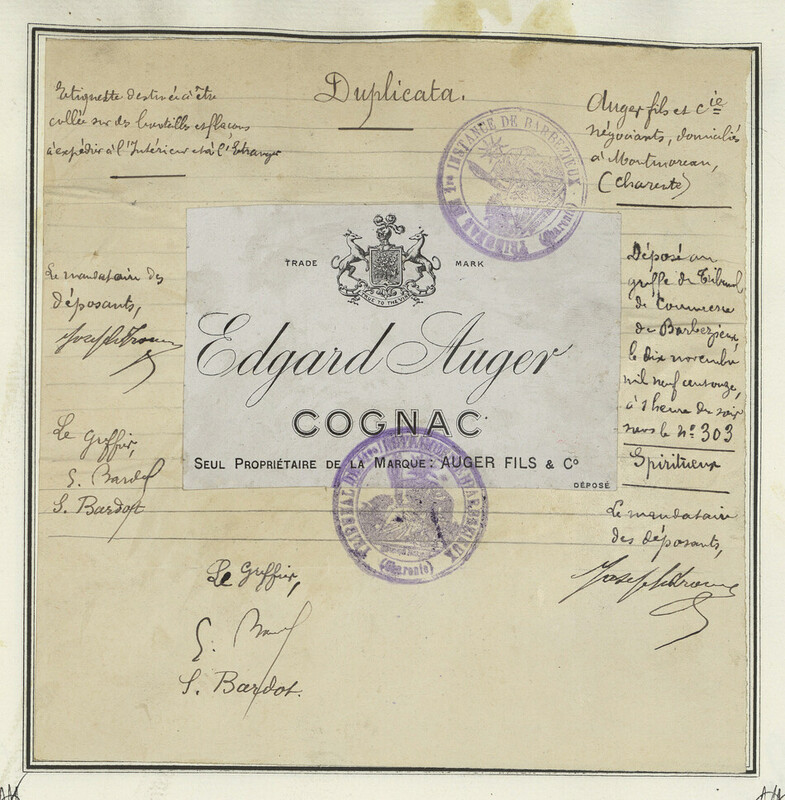 Duplicata.
Etiquette destinée à être
collée sur des bouteilles et flacons
à expédier à l'Intérieur et à l'Etranger
Auger fils et Cie
négociants, domiciliés
à Montmoreau,
(Charente)
TRIBUNAL DE 1re INSTANCE DE BARBEZIEUX
(Charente)
Le mandataire des
déposants,
TRADE MARK
Edgard Auger
COGNAC
SEUL PROPRIÉTAIRE DE LA MARQUE: AUGER FILS & Co
DÉPOSÉ
Déposé au
greffe du Tribunal
de Commerce
de Barbezieux,
le dix novembre
mil neuf cent onze,
à 1 heure du soir
sous le No 303
Spiritueux
Le mandataire
des déposants,
Le Greffier,
S. Bardot
TRIBUNAL DE 1re INSTANCE DE BARBEZIEUX
(Charente)
Le Greffier,
S. Bardot.